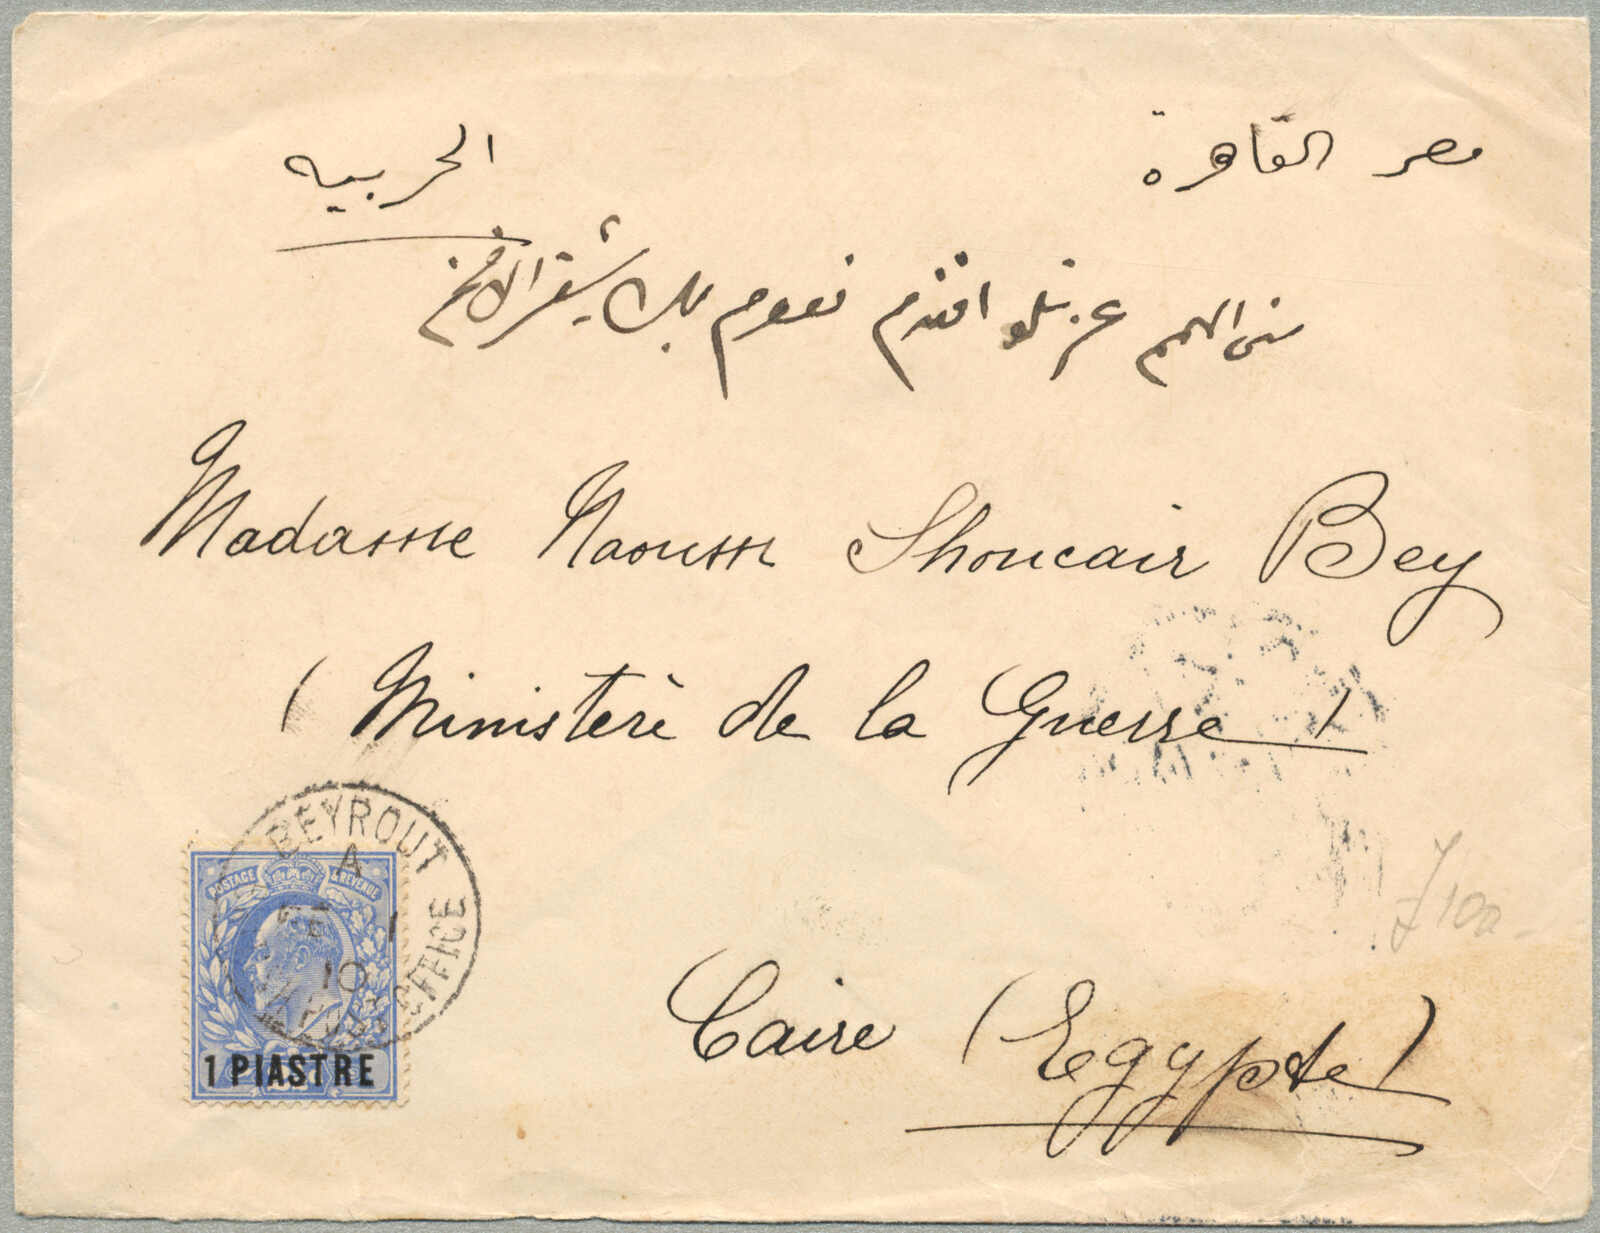 مصر القاهرة الحربيه
سنى الهمم عزتلو افندم نعوم بك شقير الافخم
Madame Naoum Shoucair Bey
( Ministerè de la Guerre )
Caire ( Egypte )
BEYROUT
A
1
10
OFFICE
POSTAGE & REVENUE
1 PIASTRE